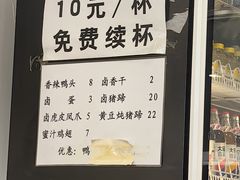 10元/杯
免费续杯
香辣鸭头 8 卤香干 2
卤蛋 3 卤猪蹄 20
卤虎皮凤爪 5 黄豆炖猪蹄 22
蜜汁鸡翅 7
优惠：鸭